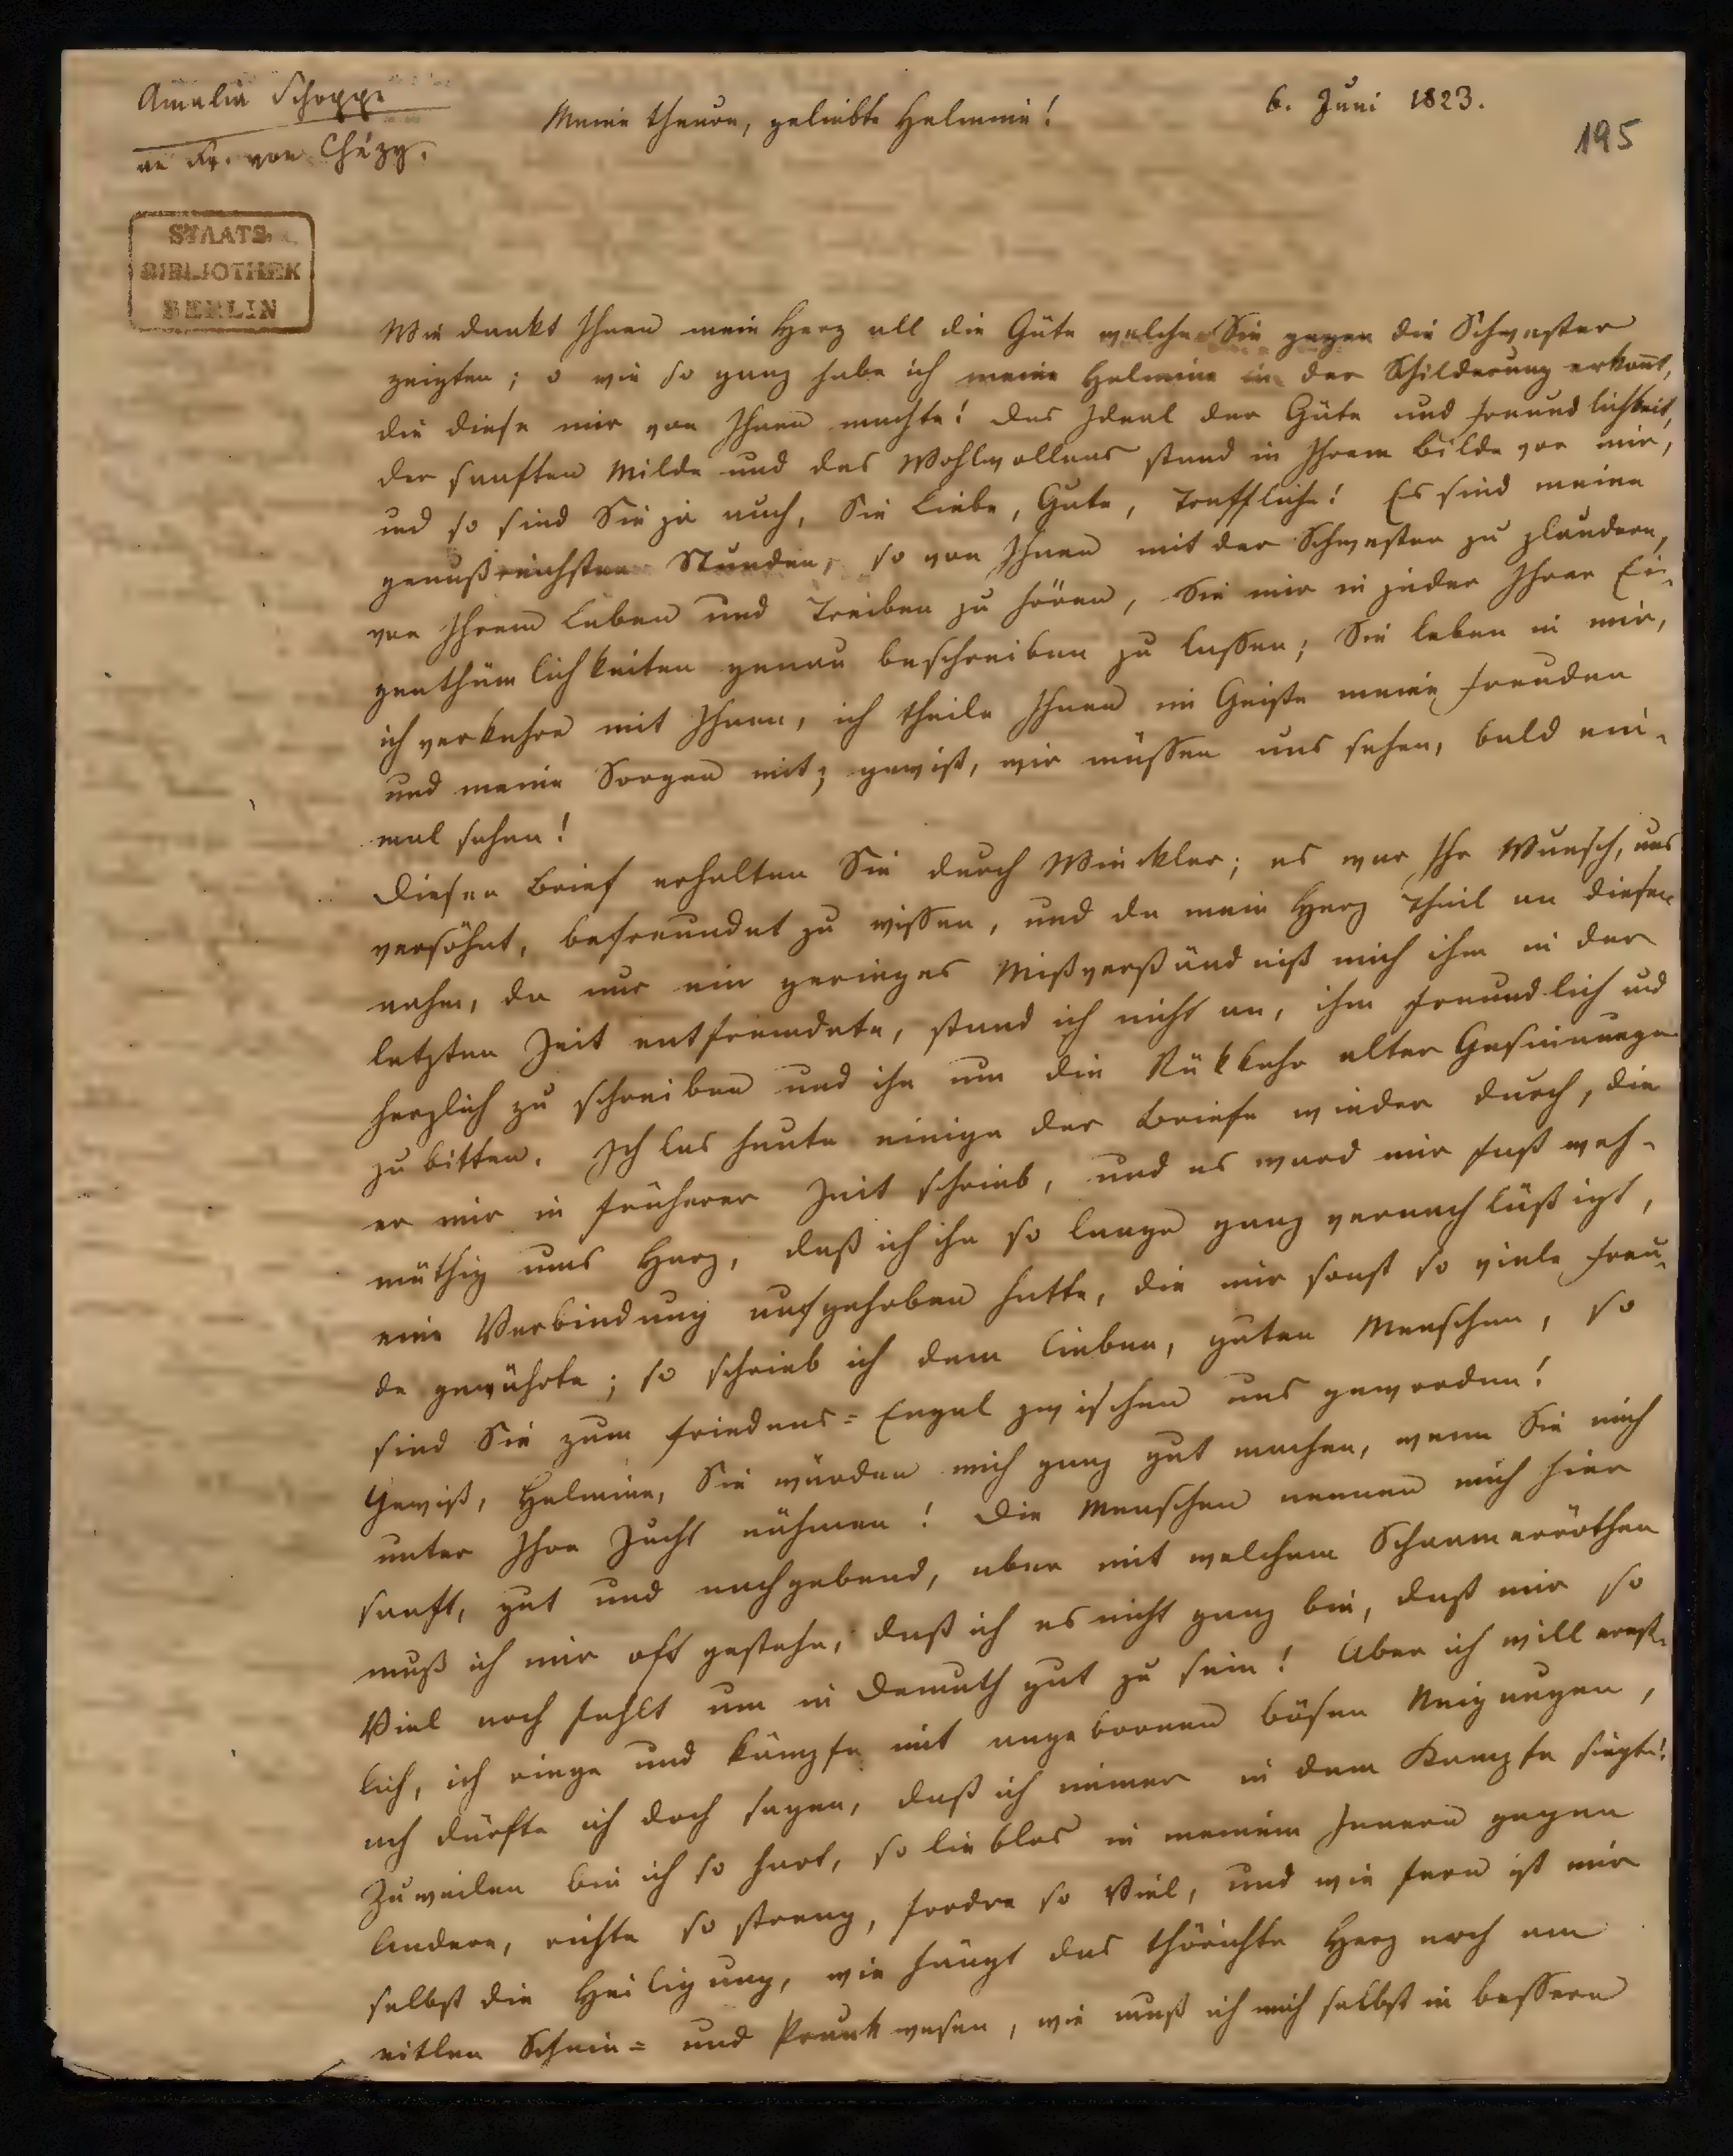 Amalia Schoppe
an Fr. von Chézy.
Meine theure, geliebte Helmine!
6. Juni 1823.
195
STAATS
BIBLIOTHEK
BERLIN
Wie dankt Ihnen mein Herz all die Güte welche Sie gegen die Schwester
zeigten; o wie so ganz habe ich meine Helmine in der Schilderung erkant,
die diese mir von Ihnen machte! Das Ideal der Güte und Freundlichkeit,
der sanften Milde und des Wohlwollens stand in Ihrem Bilde vor mir,
und so sind Sie ja auch, Sie Liebe, Gute, Treffliche! Es sind meine
genußreichsten Stunden, so von Ihnen mit der Schwester zu plaudern,
von Ihrem Leben und Treiben zu hören, Sie mir in jeder Ihrer Ei-
genthümlichkeiten genau beschreiben zu lassen; Sie leben in mir,
ich verkehre mit Ihnen, ich theile Ihnen im Geiste meine Freuden
und meine Sorgen mit; gewiß, wir müssen uns sehen, bald ein-
mal sehen!
Diesen Brief erhalten Sie durch Winckler; es war Ihr Wunsch, uns
versöhnt, befreundet zu wissen, und da mein Herz Theil an diesem
nahm, da nur ein geringes Mißverständniß mich ihm in der
letzten Zeit entfremdete, stand ich nicht an, ihm freundlich und
herzlich zu schreiben und ihn um die Rükkehr alter Gesinnungen
zu bitten. Ich las heute einige der Briefe wieder durch, die
er mir in früherer Zeit schrieb, und es ward mir fast weh-
müthig ums Herz, daß ich ihn so lange ganz vernachläßigt,
eine Verbindung aufgehoben hatte, die mir sonst so viele Freu-
de gewährte; so schrieb ich dem lieben, guten Menschen, so
sind Sie zum Friedens-Engel zwischen uns geworden!
Gewiß, Helmine, Sie würden mich ganz gut machen, wenn Sie mich
unter Ihre Zucht nähmen! Die Menschen nennen mich hier
sanft, gut und nachgebend, aber mit welchem Schaamerröthen
muß ich mir oft gestehn, daß ich es nicht ganz bin, daß mir so
Viel noch fehlt um in Demuth gut zu sein! Aber ich will ernst-
lich, ich ringe und kämpfe mit angebornen bösen Neigungen,
ach dürfte ich doch sagen, daß ich immer in dem Kampfe siegte!
Zuweilen bin ich so hart, so lieblos in meinem Innern gegen
Andere, richte so streng, fordre so Viel, und wie fern ist mir
selbst die Heiligung, wie hängt das thörichte Herz noch am
eitlen Schein- und Prunkwesen, wie muß ich mich selbst in bessern